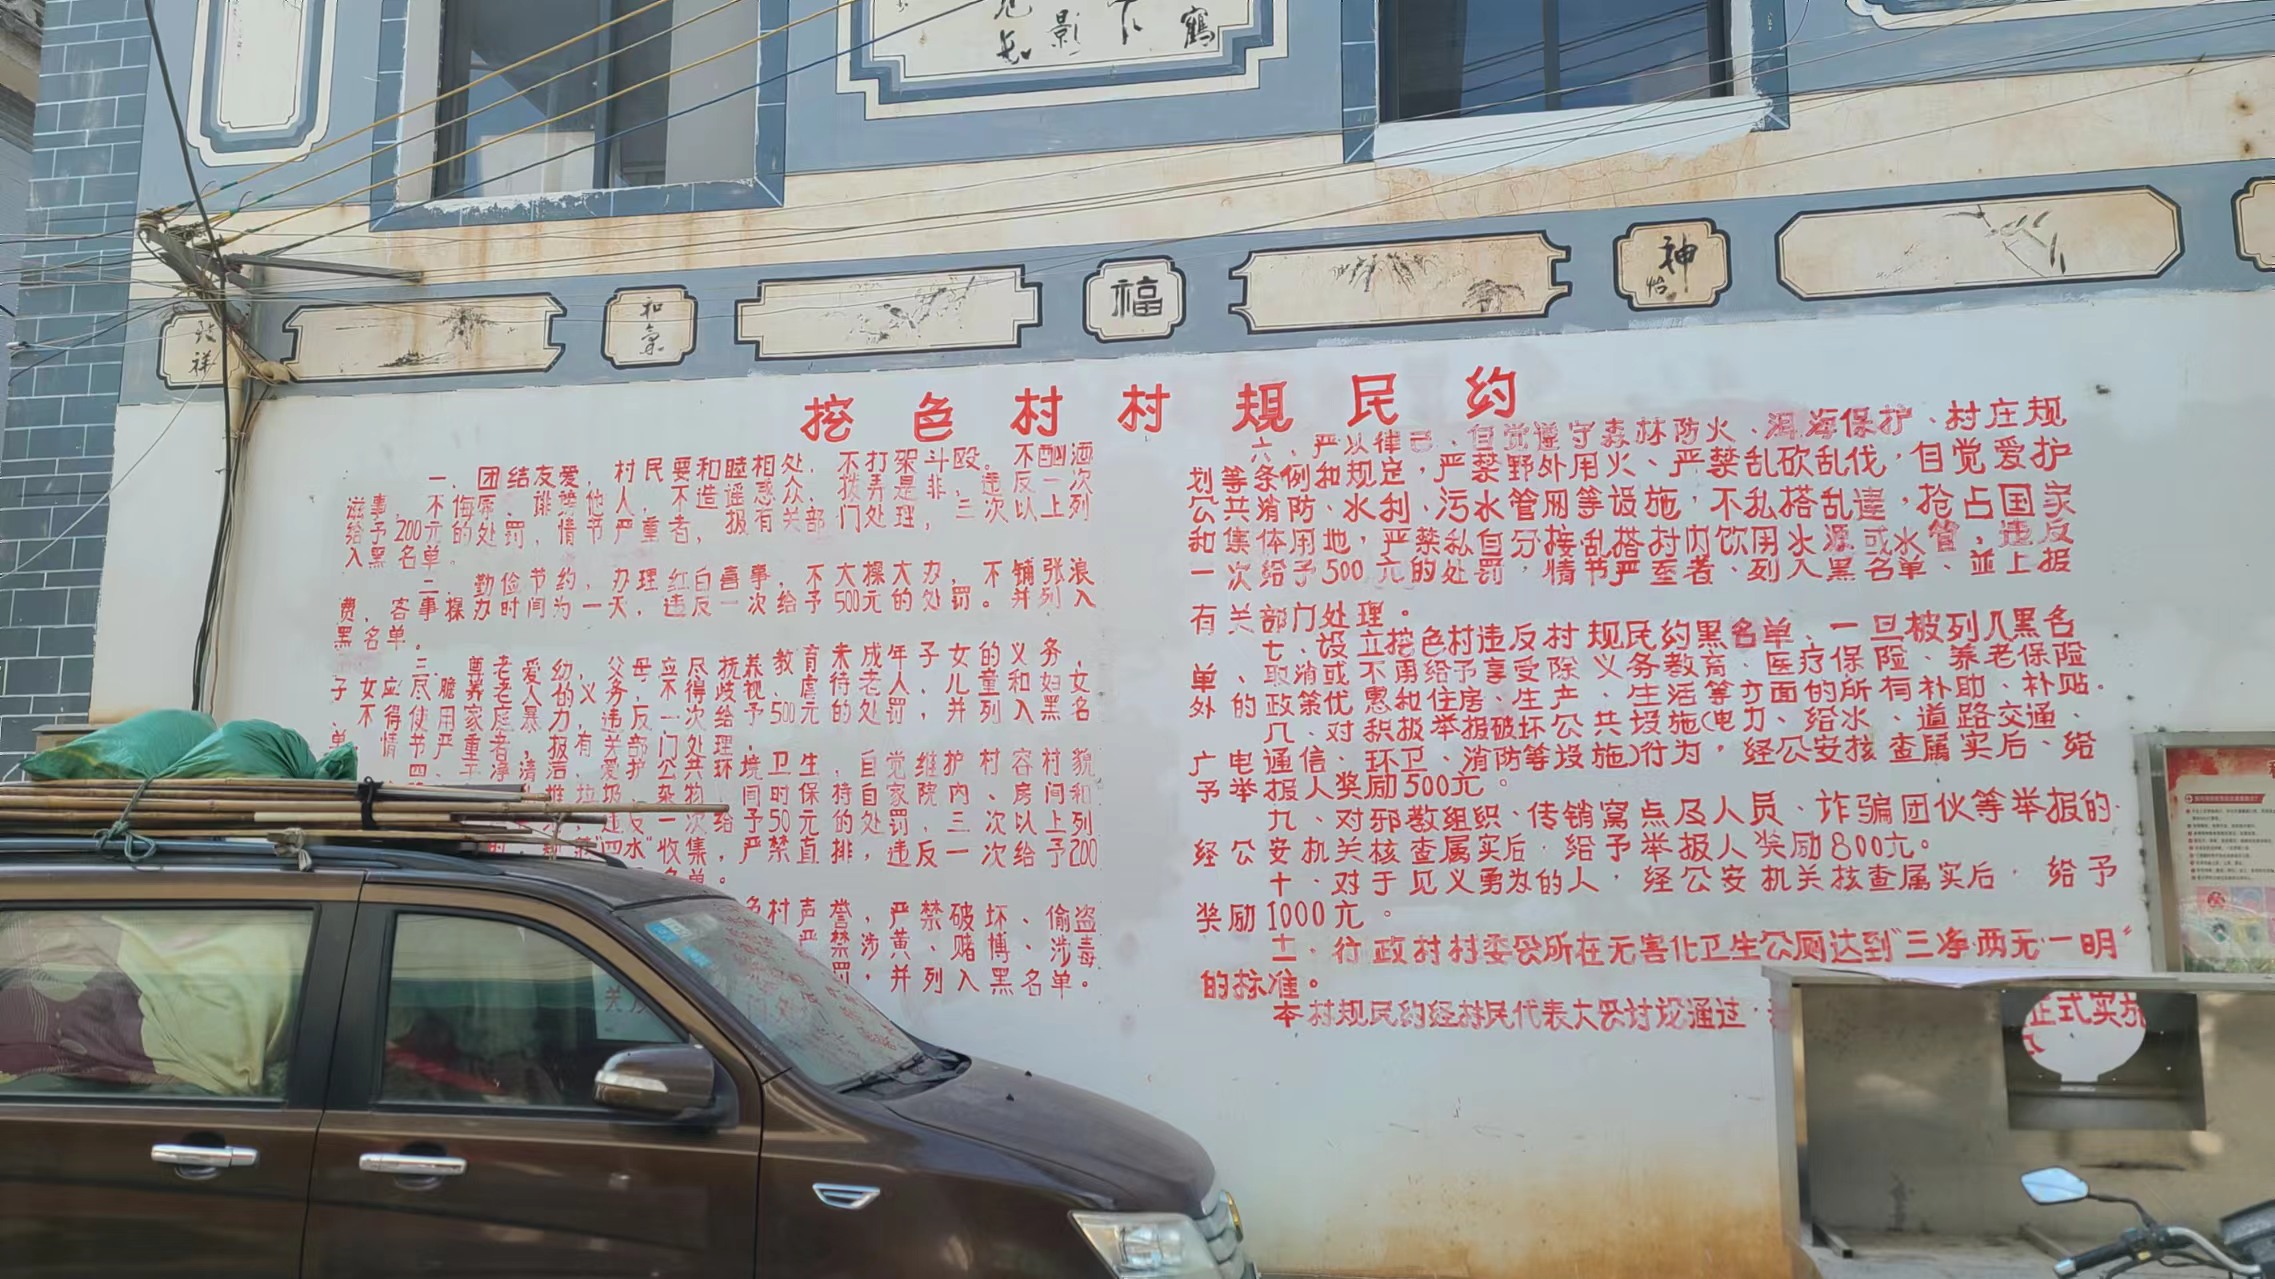 影
下
鹤
祥
和
气
福
神
怡
挖色村村规民约
一、团结友爱，村民要和睦相处，不打架斗殴。不酗酒
滋事，不侮辱、诽谤他人，不造谣惑众，拨弄是非，违反一次
给予200元的处罚，情节严重者，报有关部门处理，三次以上列
入黑名单。
二、勤俭节约，办理红白喜事，不大操大办，不铺张浪
费，客事操办时间为一天，违反一次给予500元的处罚。并列入
黑名单。
三、尊老爱幼，父母应尽抚养教育未成年子女的义务，
子女应尽赡养老人的义务，不得歧视、虐待老人、儿童和妇女
不得使用家庭暴力，违反一次给予500元的处罚，并列入黑名
单，情节严重者，报有关部门处理，
四、干净清洁，爱护公共环境卫生，自觉维护村容村貌
堆垃圾、杂物，同时保持自家院内、房间和
，违反一次给予50元的处罚，三次以上列
"四水"收集，严禁直排，违反一次给予200
名单。
色村声誉，严禁破坏、偷盗
严禁涉黄、赌博、涉毒
罚，并列入黑名单。
六、严以律己、自觉遵守森林防火、洱海保护、村庄规
划等条例和规定，严禁野外用火、严禁乱砍乱伐，自觉爱护
公共消防、水利、污水管网等设施，不乱搭乱建，抢占国家
和集体用地，严禁私自分接乱搭村内饮用水源或水管，违反
一次给予500元的处罚，情节严重者、列入黑名单、並上报
有关部门处理。
七、设立挖色村违反村规民约黑名单、一旦被列入黑名
单、取消或不再给予享受除义务教育、医疗保险、养老保险
外的政策优惠和住房、生产、生活等方面的所有补助、补贴.
八、对积极举报破坏公共设施(电力、给水、道路交通、
广电通信、环卫、消防等设施)行为，经公安核查属实后、给
予举报人奖励500元。
九、对邪教组织、传销窝点及人员、诈骗团伙等举报的.
经公安机关核查属实后，给予举报人奖励800元。
十、对于见义勇为的人，经公安机关核查属实后，给予
奖励1000元。
十一、行政村村委会所在无害化卫生公厕达到"三净·两无·一明"
的标准。
本村规民约经村民代表大会讨论通过，
正式实施